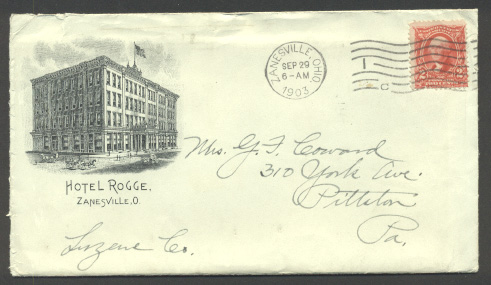 ZANESVILLE, OHIO.
SEP 29
6-AM
1903
1
C
HOTEL ROGGE,
ZANESVILLE, O.
Mrs. G. F. Coward
310 York Ave.
Pittston
Pa.
Luzerne Co.